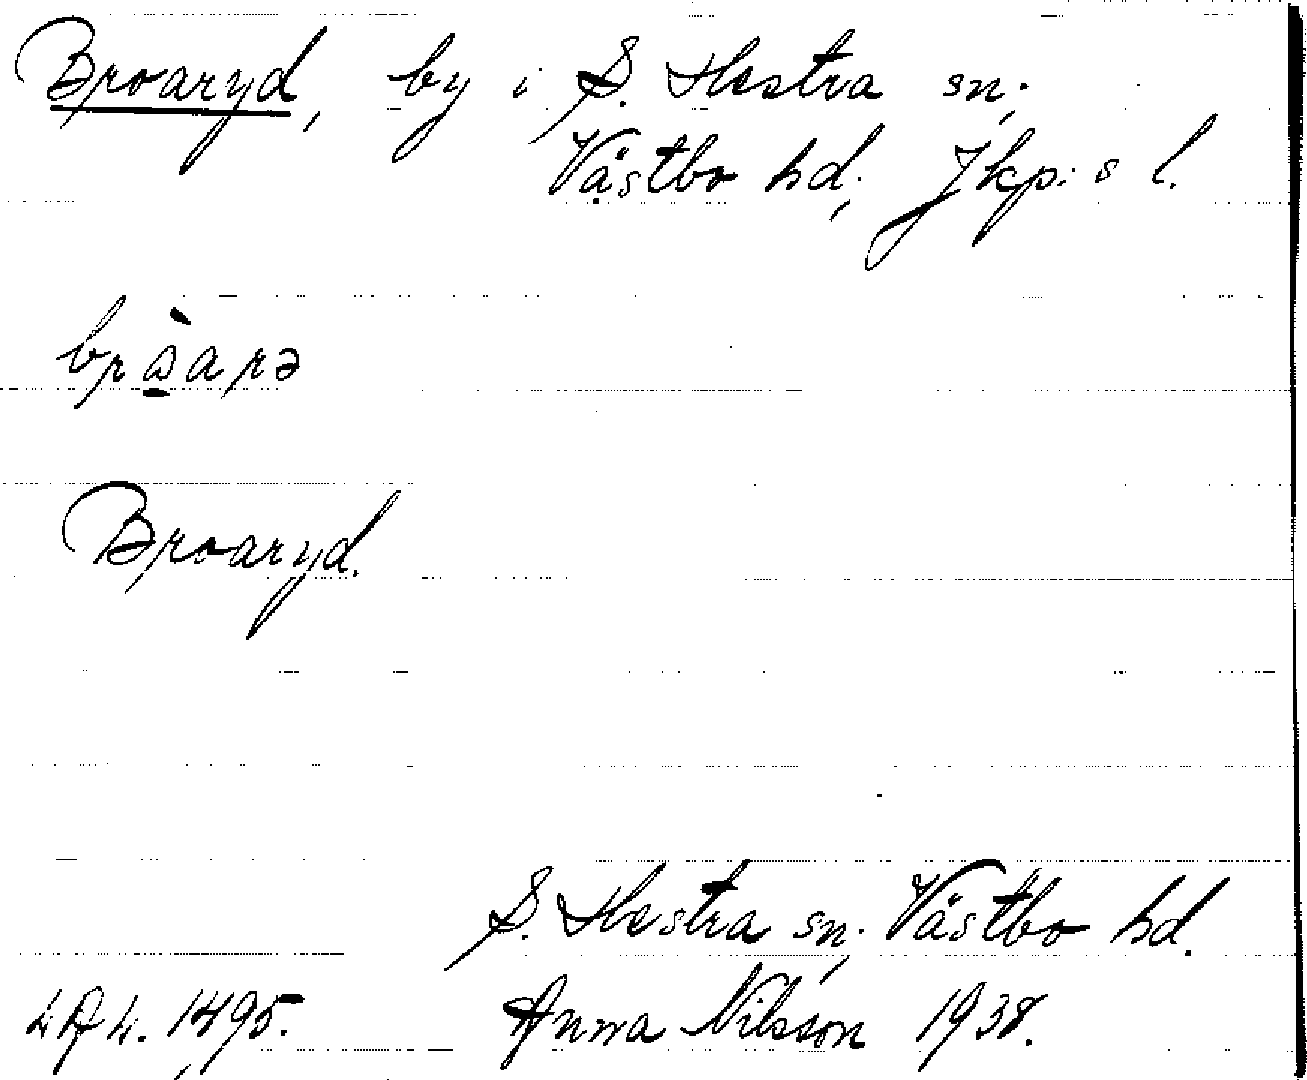 Broaryd, by i S. Hestra sn.,
Västbo hd., Jkp:s l.
Broaryd.
S. Hestra sn., Västbo hd.
1495. Anna Nilsson 1938.